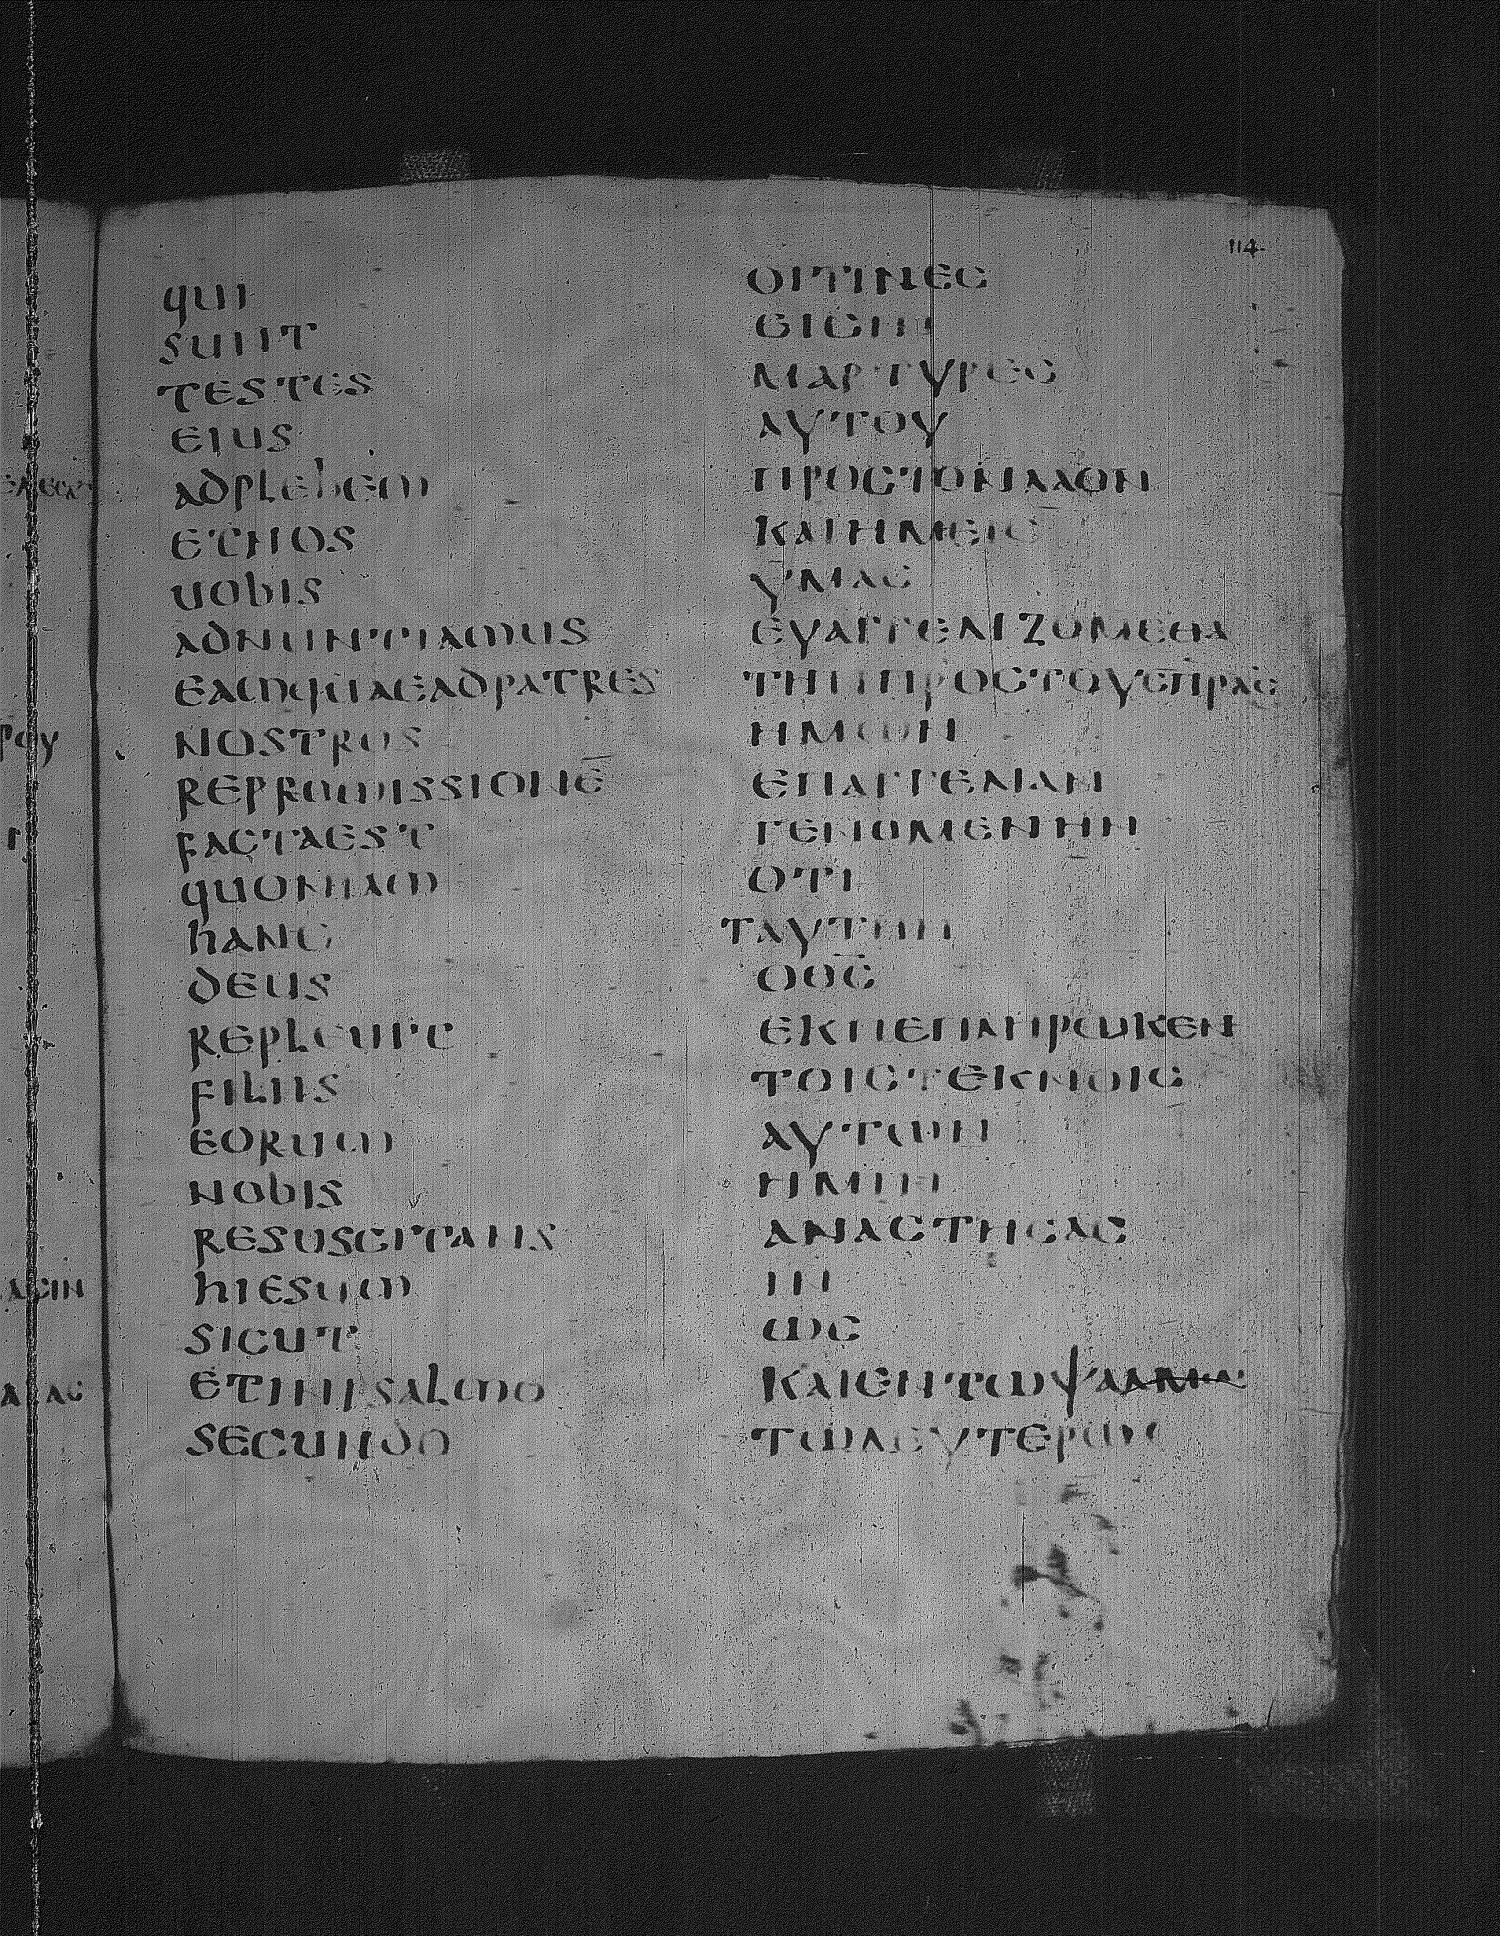 114
qui
sunt
testes
eius
adplebem
etnos
uobis
adnuntiamus
eamquaeadpatres
nostros
repromissionē
factaest
quoniam
hanc
deus
repleuit
filiis
eorum
nobis
resuscitans
hiesum
sicut
etinpsalmo
secundo
ΟΙΤΙΝΕϹ
ΕΙϹΙΝ
ΜΑΡΤΥΡΕϹ
ΑΥΤΟΥ
ΠΡΟϹΤΟΝΛΑΟΝ
ΚΑΙΗΜΕΙϹ
ΥΜΑϹ
ΕΥΑΓΓΕΛΙΖΟΜΕΘΑ
ΤΗΝΠΡΟϹΤΟΥϹΠΡΑϹ
ΗΜΩΝ
ΕΠΑΓΓΕΛΙΑΝ
ΓΕΝΟΜΕΝΗΝ
ΟΤΙ
ΤΑΥΤΗΝ
ΟΘ̅Ϲ̅
ΕΚΠΕΠΛΗΡΩΚΕΝ
ΤΟΙϹΤΕΚΝΟΙϹ
ΑΥΤΩΝ
ΗΜΙΝ
ΑΝΑϹΤΗϹΑϹ
ΙΝ
ΩϹ
ΚΑΙΕΝΤΩΨΑΛΜΩ
ΤΩΔΕΥΤΕΡΩ